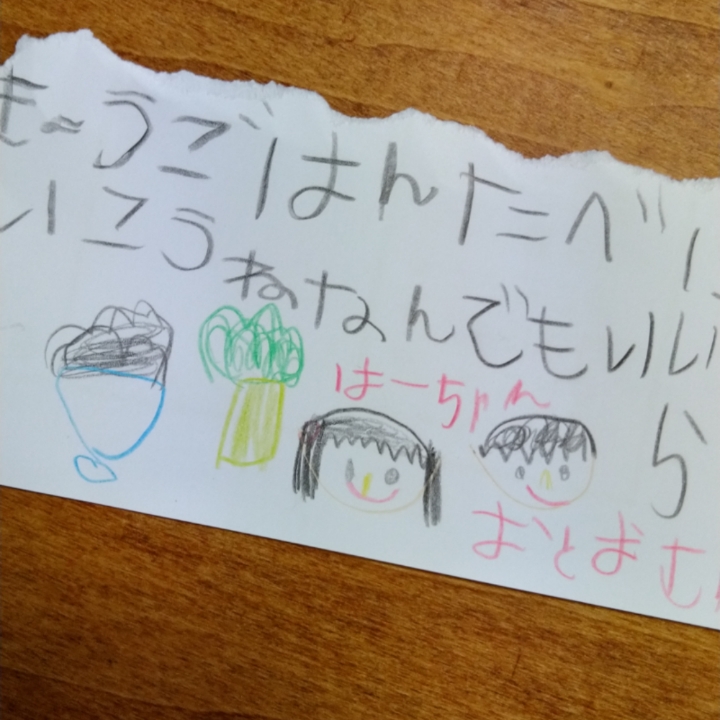 き〜うごはんたべ
いこうねなんでもいい
はーちゃん
ら
おとおむ